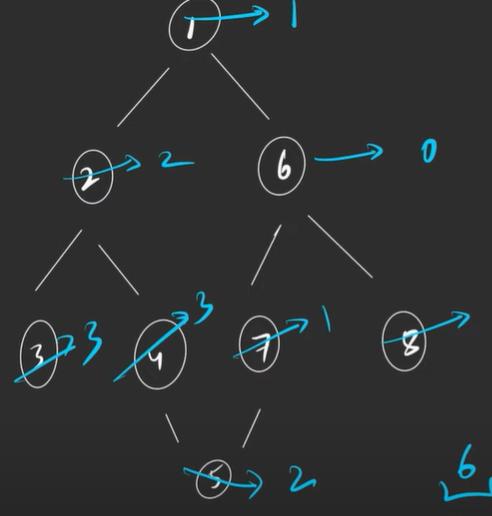 1 → 1
2 → 2
6 → 0
3 → 3
4 → 3
7 → 1
8 →
5 → 2
6